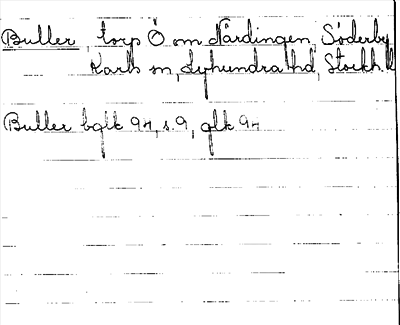 Buller, torp Ö om Närdingen, Söderby
Karls sn, Lyhundra hd, Stockh. l
Buller bglk 94, s. 9, glk 94